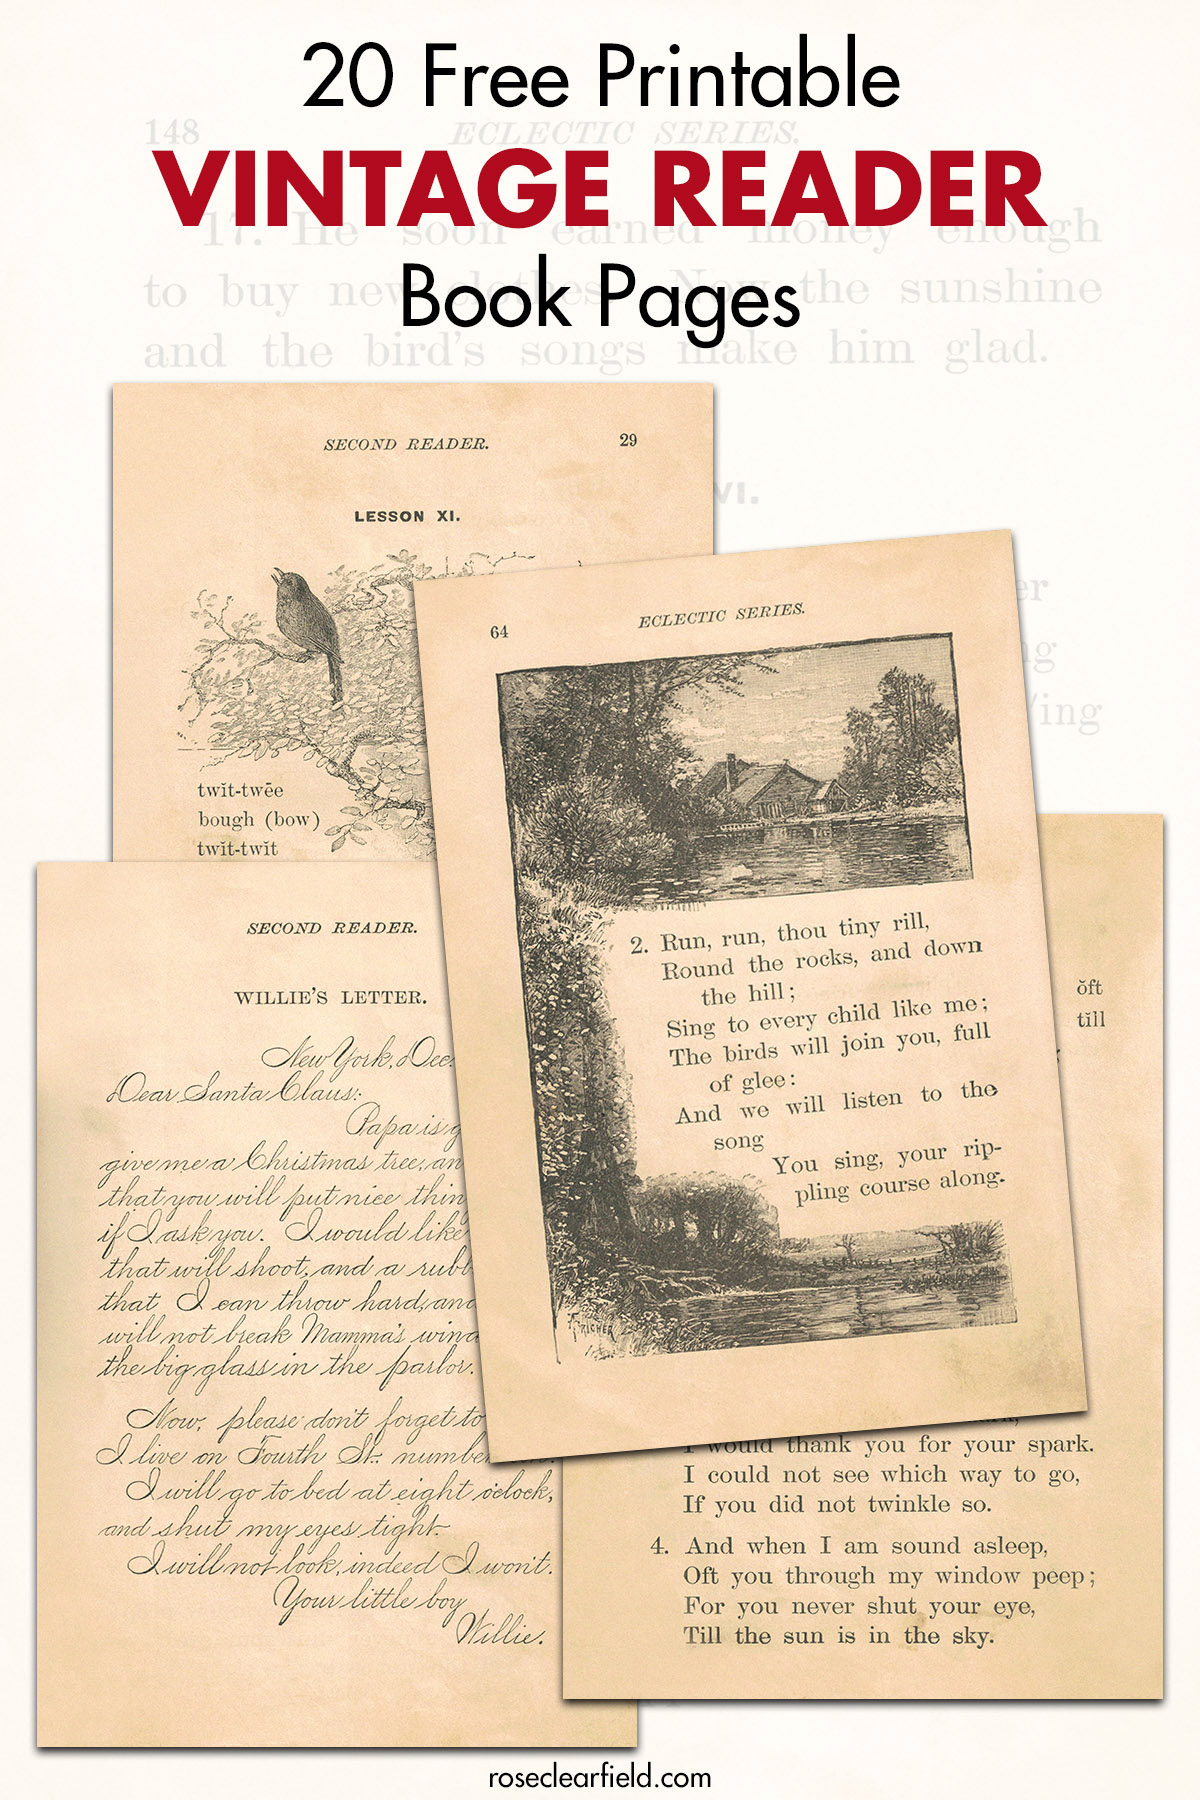 20 Free Printable
148 ECLECTIC SERIES.
VINTAGE READER
17. He soon earned money enough
Book Pages
to buy new clothes. Now the sunshine
and the bird's songs make him glad.
VI.
er
ng
/ing
SECOND READER. 29
LESSON XI.
twĭt-twēe
bough (bow)
twĭt-twĭt
64 ECLECTIC SERIES.
2. Run, run, thou tiny rill,
Round the rocks, and down
the hill;
Sing to every child like me;
The birds will join you, full
of glee:
And we will listen to the
song
You sing, your rip-
pling course along.
SECOND READER.
WILLIE'S LETTER.
New York, Dec.
Dear Santa Claus:
Papa is g
give me a Christmas tree, an
that you will put nice thin
if I ask you. I would like
that will shoot, and a rubb
that I can throw hard, and
will not break Mamma's wind
the big glass in the parlor.
Now, please don't forget to
I live on Fourth St. number
I will go to bed at eight o'clock,
and shut my eyes tight.
I will not look, indeed I won't.
Your little boy
Willie.
ŏft
tĭll
I would thank you for your spark.
I could not see which way to go,
If you did not twinkle so.
4. And when I am sound asleep,
Oft you through my window peep;
For you never shut your eye,
Till the sun is in the sky.
roseclearfield.com